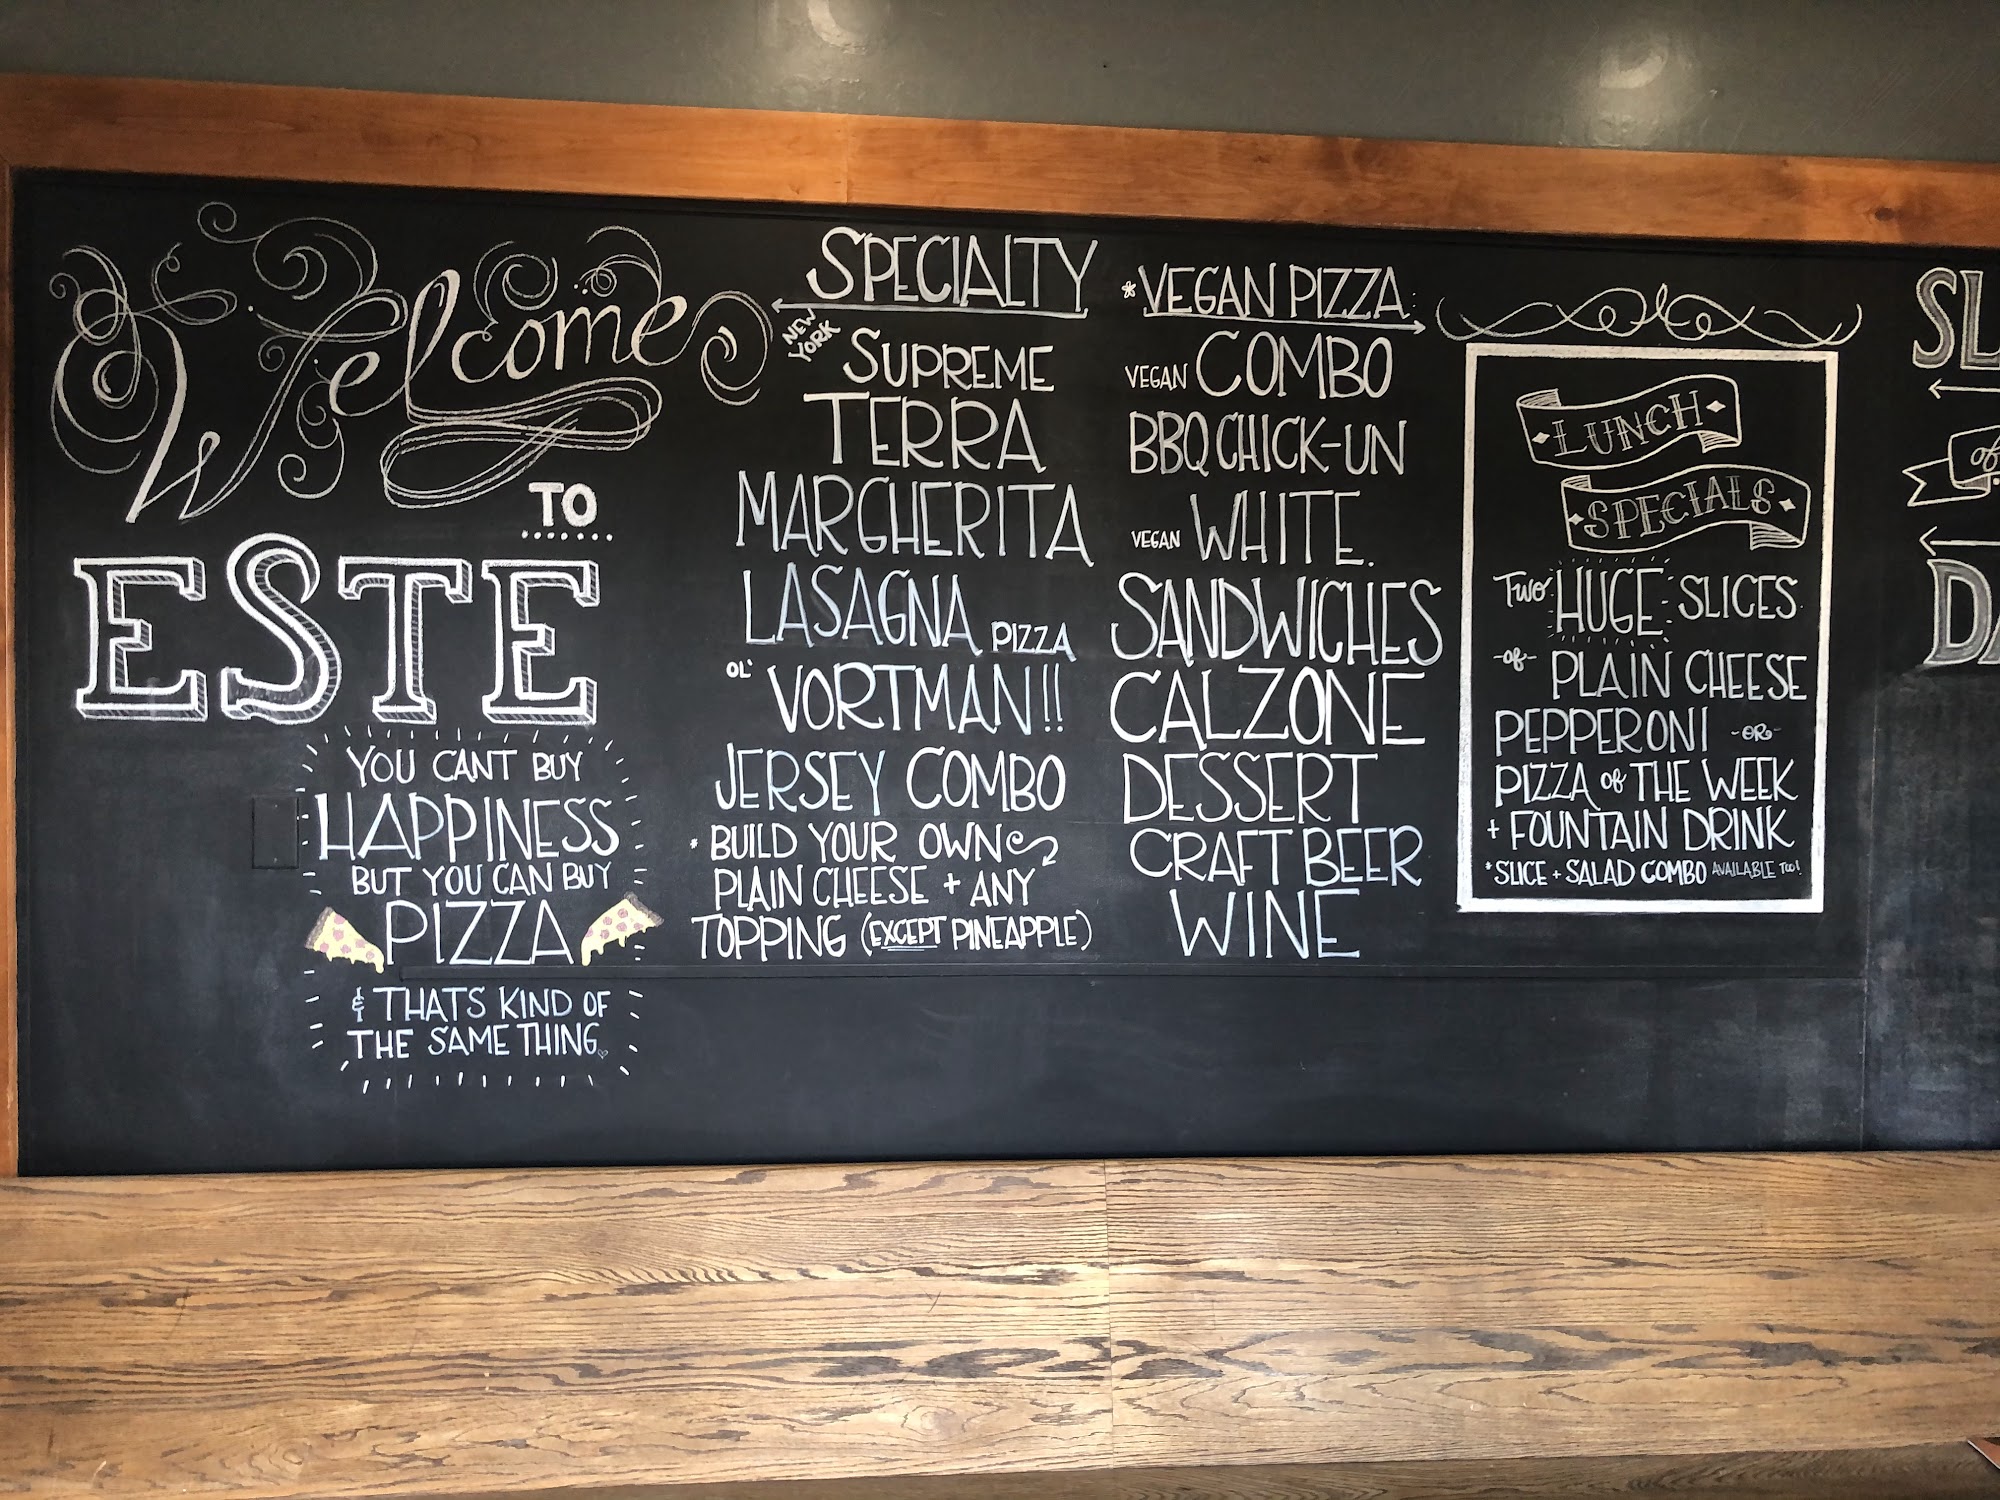 Welcome
TO
ESTE
YOU CANT BUY
HAPPINESS
BUT YOU CAN BUY
PIZZA
& THATS KIND OF
THE SAME THING
SPECIALTY
NEW
YORK
SUPREME
TERRA
MARGHERITA
LASAGNA PIZZA
OL' VORTMAN!!
JERSEY COMBO
* BUILD YOUR OWN
PLAIN CHEESE + ANY
TOPPING (EXCEPT PINEAPPLE)
*VEGAN PIZZA:
VEGAN COMBO
BBQ CHICK-UN
VEGAN WHITE.
SANDWICHES
CALZONE
DESSERT
CRAFT BEER
WINE
LUNCH
SPECIALS
TWO HUGE SLICES
-of- PLAIN CHEESE
PEPPERONI -OR-
PIZZA of THE WEEK
+ FOUNTAIN DRINK
*SLICE + SALAD COMBO AVAILABLE TOO!
SL
of
DA